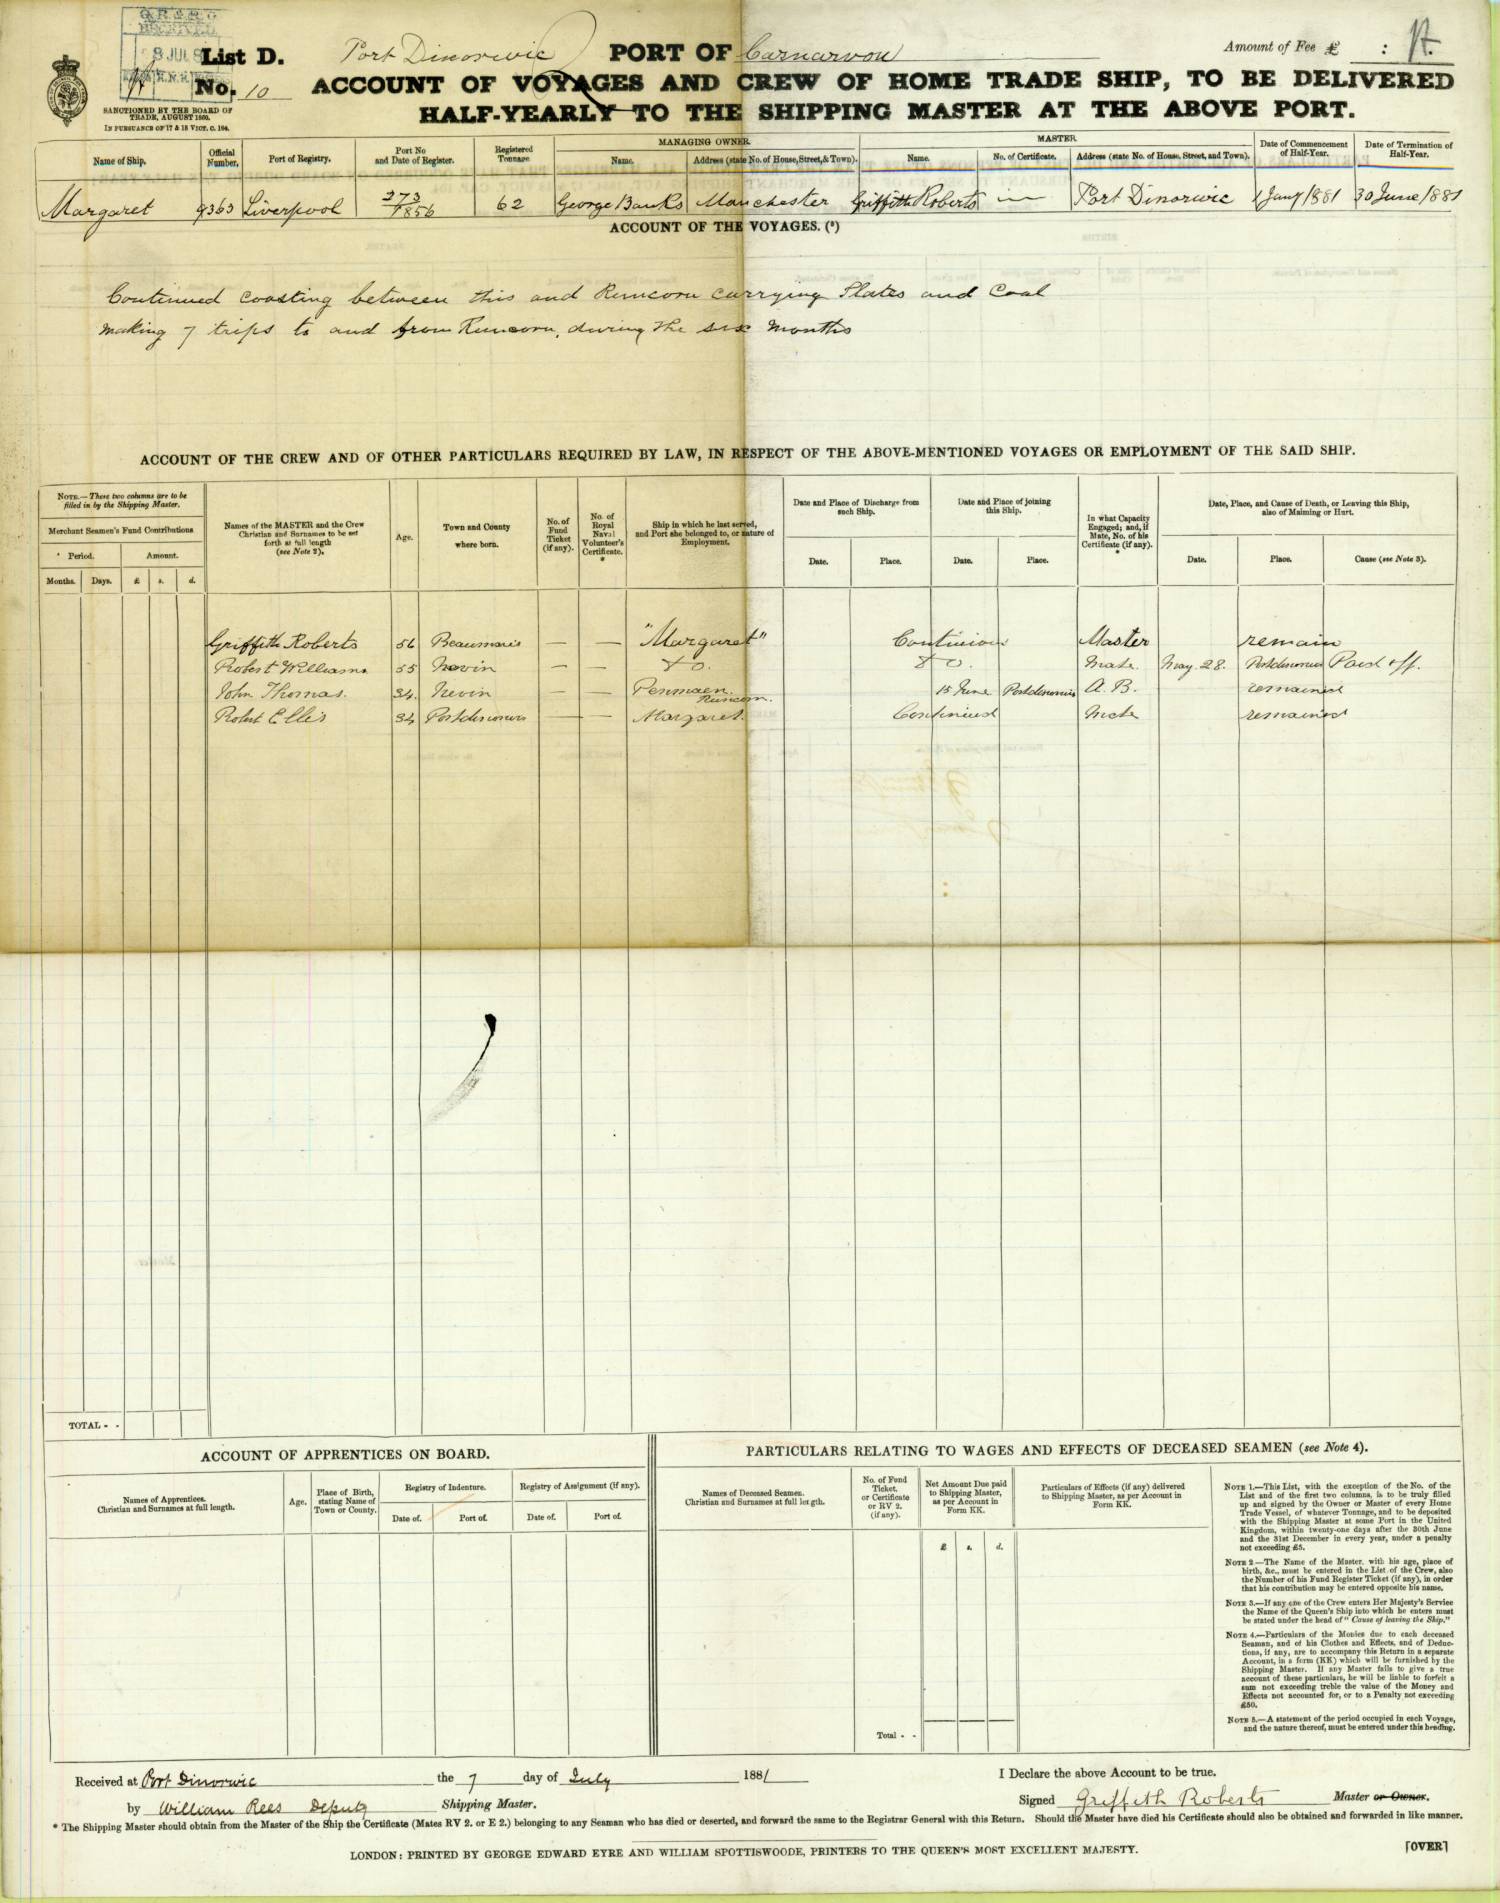 RECEIVED
8 JUL 8
List D. Port Dinorwic PORT OF Carnarvon Amount of Fee £ :
No. 10 ACCOUNT OF VOYAGES AND CREW OF HOME TRADE SHIP, TO BE DELIVERED
HALF-YEARLY TO THE SHIPPING MASTER AT THE ABOVE PORT.
SANCTIONED BY THE BOARD OF
TRADE, AUGUST 1860.
IN PURSUANCE OF 17 & 18 VICT. C. 104.
MANAGING OWNER. MASTER
Name of Ship. Official Number. Port of Registry. Port No and Date of Register. Registered Tonnage Name. Address (state No. of House, Street, & Town). Name. No. of Certificate. Address (state No. of House, Street, and Town). Date of Commencement of Half-Year. Date of Termination of Half-Year.
Margaret 9363 Liverpool 273/1856 62 George Banks Manchester Griffith Roberts — Port Dinorwic 1 Jany 1881 30 June 1881
ACCOUNT OF THE VOYAGES. (⁵)
Continued coasting between this and Runcorn carrying Slates and Coal
making 7 trips to and from Runcorn, during the six months
ACCOUNT OF THE CREW AND OF OTHER PARTICULARS REQUIRED BY LAW, IN RESPECT OF THE ABOVE-MENTIONED VOYAGES OR EMPLOYMENT OF THE SAID SHIP.
NOTE.—These two columns are to be
filled in by the Shipping Master.
Merchant Seamen's Fund Contributions
Period. Amount.
Months. Days. £ s. d.
Names of the MASTER and the Crew
Christian and Surnames to be set
forth at full length
(see Note 2).
Age.
Town and County
where born.
No. of
Fund
Ticket
(if any).
No. of
Royal
Naval
Volunteer's
Certificate.
*
Ship in which he last served,
and Port she belonged to, or nature of
Employment.
Date and Place of Discharge from
such Ship.
Date. Place.
Date and Place of joining
this Ship.
Date. Place.
In what Capacity
Engaged; and, if
Mate, No. of his
Certificate (if any).
*
Date, Place, and Cause of Death, or Leaving this Ship,
also of Maiming or Hurt.
Date. Place. Cause (see Note 3).
Griffith Roberts 56 Beaumaris — — "Margaret" Continious Master remain
Robert Williams 55 Nevin — — Do. Do. Mate May. 28. Portdinorwic Paid off.
John Thomas. 34. Nevin Penmaen. Runcorn. 15 June Portdinorwic A. B. remained
Robert Ellis 34 Portdinorwic — — Margaret. Continued Mate remained
TOTAL - -
ACCOUNT OF APPRENTICES ON BOARD.
Names of Apprentices.
Christian and Surnames at full length.
Age.
Place of Birth,
stating Name of
Town or County.
Registry of Indenture.
Date of. Port of.
Registry of Assignment (if any).
Date of. Port of.
PARTICULARS RELATING TO WAGES AND EFFECTS OF DECEASED SEAMEN (see Note 4).
Names of Deceased Seamen.
Christian and Surnames at full length.
No. of Fund
Ticket,
or Certificate
or RV 2.
(if any).
Net Amount Due paid
to Shipping Master,
as per Account in
Form KK.
£ s. d.
Particulars of Effects (if any) delivered
to Shipping Master, as per Account in
Form KK.
Total - -
NOTE 1.—This List, with the exception of the No. of the
List and of the first two columns, is to be truly filled
up and signed by the Owner or Master of every Home
Trade Vessel, of whatever Tonnage, and to be deposited
with the Shipping Master at some Port in the United
Kingdom, within twenty-one days after the 30th June
and the 31st December in every year, under a penalty
not exceeding £5.
NOTE 2—The Name of the Master, with his age, place of
birth, &c., must be entered in the List of the Crew, also
the Number of his Fund Register Ticket (if any), in order
that his contribution may be entered opposite his name.
NOTE 3.—If any one of the Crew enters Her Majesty's Service
the Name of the Queen's Ship into which he enters must
be stated under the head of "Cause of leaving the Ship."
NOTE 4.—Particulars of the Monies due to each deceased
Seaman, and of his Clothes and Effects, and of Deduc-
tions, if any, are to accompany this Return in a separate
Account, in a form (KK) which will be furnished by the
Shipping Master. If any Master fails to give a true
account of these particulars, he will be liable to forfeit a
sum not exceeding treble the value of the Money and
Effects not accounted for, or to a Penalty not exceeding
£50.
NOTE 5.—A statement of the period occupied in each Voyage,
and the nature thereof, must be entered under this heading.
Received at Port Dinorwic the 7 day of July 1881
by William Rees Deputy Shipping Master.
I Declare the above Account to be true.
Signed Griffith Roberts Master or Owner.
* The Shipping Master should obtain from the Master of the Ship the Certificate (Mates RV 2. or E 2.) belonging to any Seaman who has died or deserted, and forward the same to the Registrar General with this Return. Should the Master have died his Certificate should also be obtained and forwarded in like manner.
LONDON: PRINTED BY GEORGE EDWARD EYRE AND WILLIAM SPOTTISWOODE, PRINTERS TO THE QUEEN'S MOST EXCELLENT MAJESTY.
[OVER]